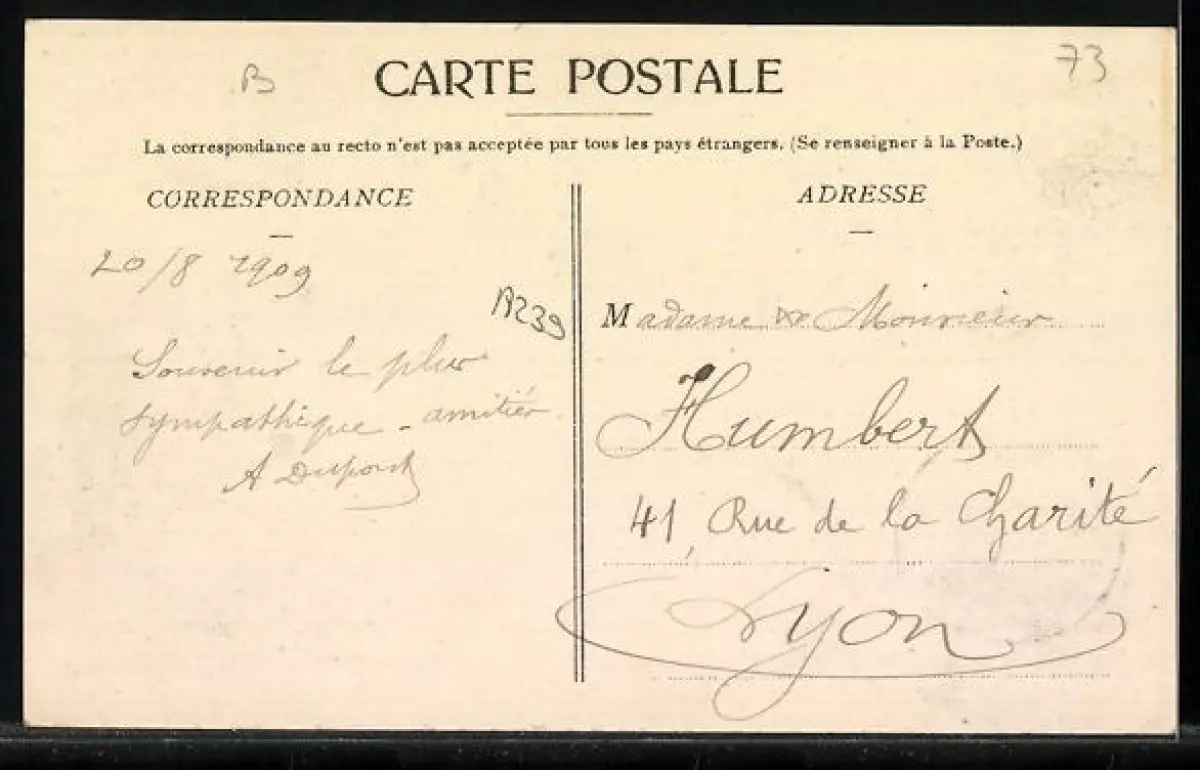 B
73
CARTE POSTALE
La correspondance au recto n'est pas acceptée par tous les pays étrangers. (Se renseigner à la Poste.)
CORRESPONDANCE
20/8 1909
Souvenir le plus
sympathique - amitiés
A Dupont
A239
ADRESSE
Madame & Monsieur
Humbert
41 Rue de la Charité
Lyon